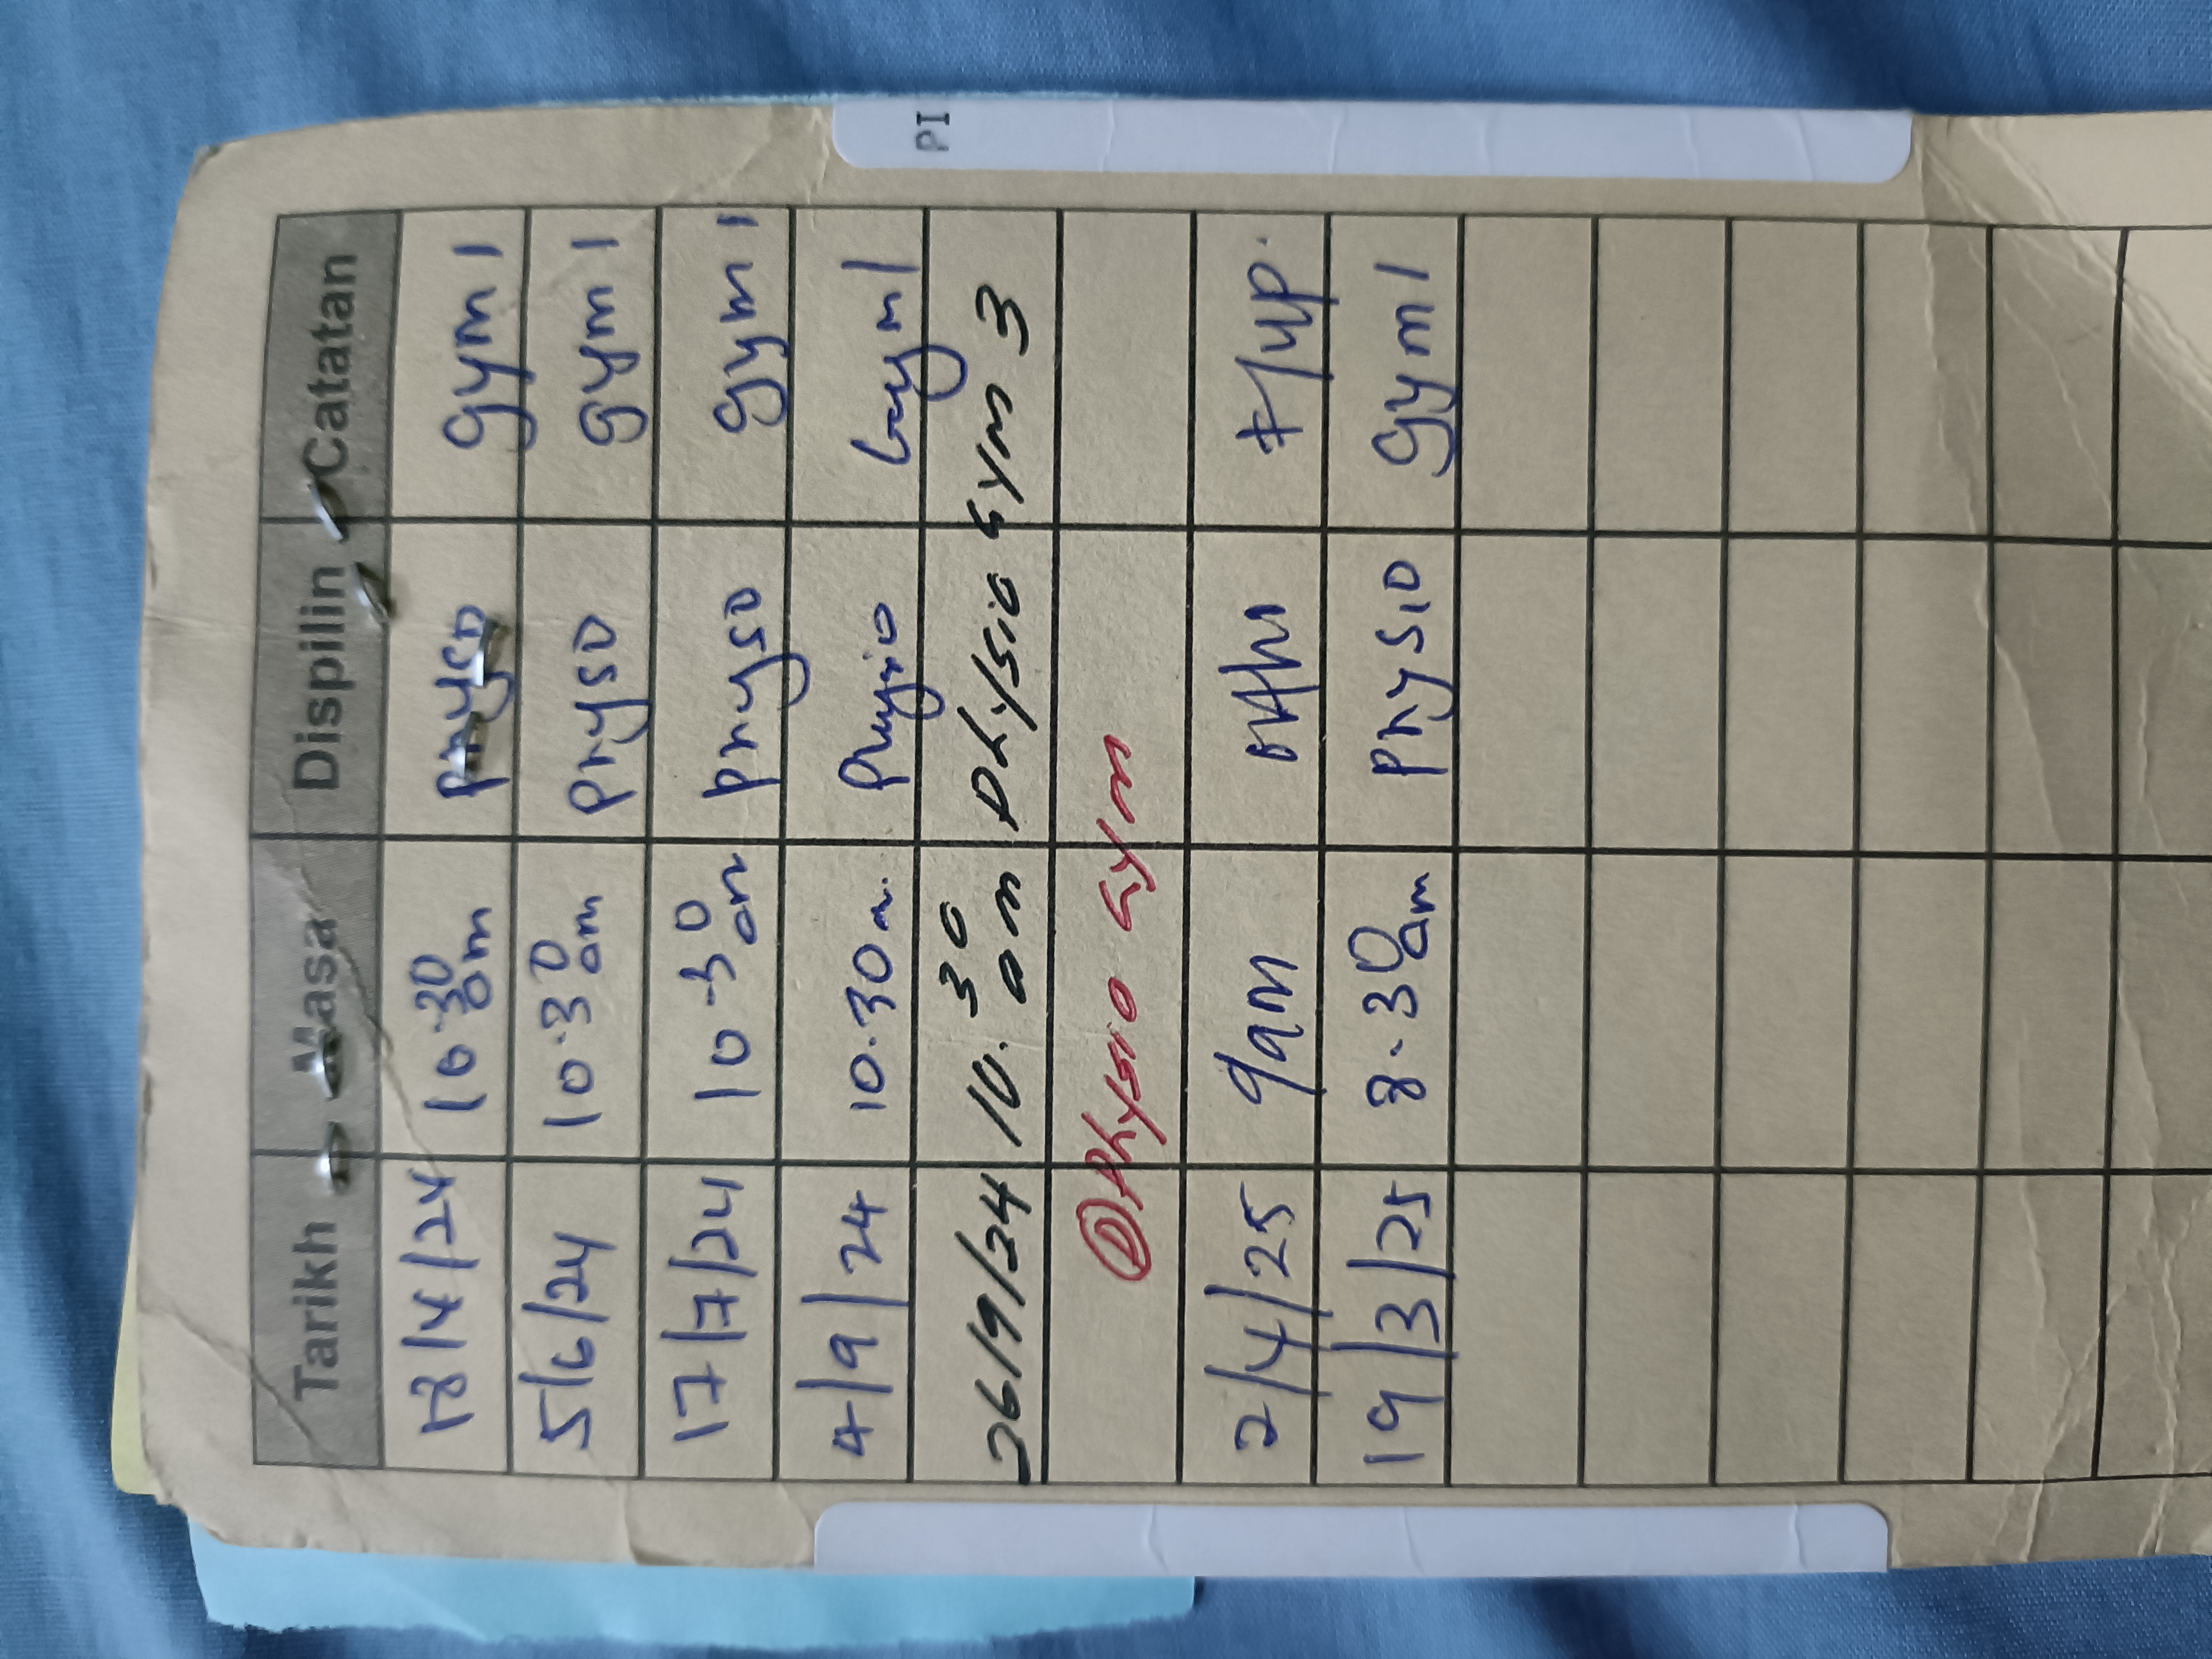 PI
Tarikh Masa Dispilin Catatan
18/4/24 10.30 am physo gym 1
5/6/24 10.30 am physo gym 1
17/7/24 10.30 am physo gym 1
4/9/24 10.30 Physio Gym 1
26/9/24 10.30 am Physio Gym 3
D Physio Gym
2/4/25 9am F/up.
19/3/25 8.30 am Physio gym 1